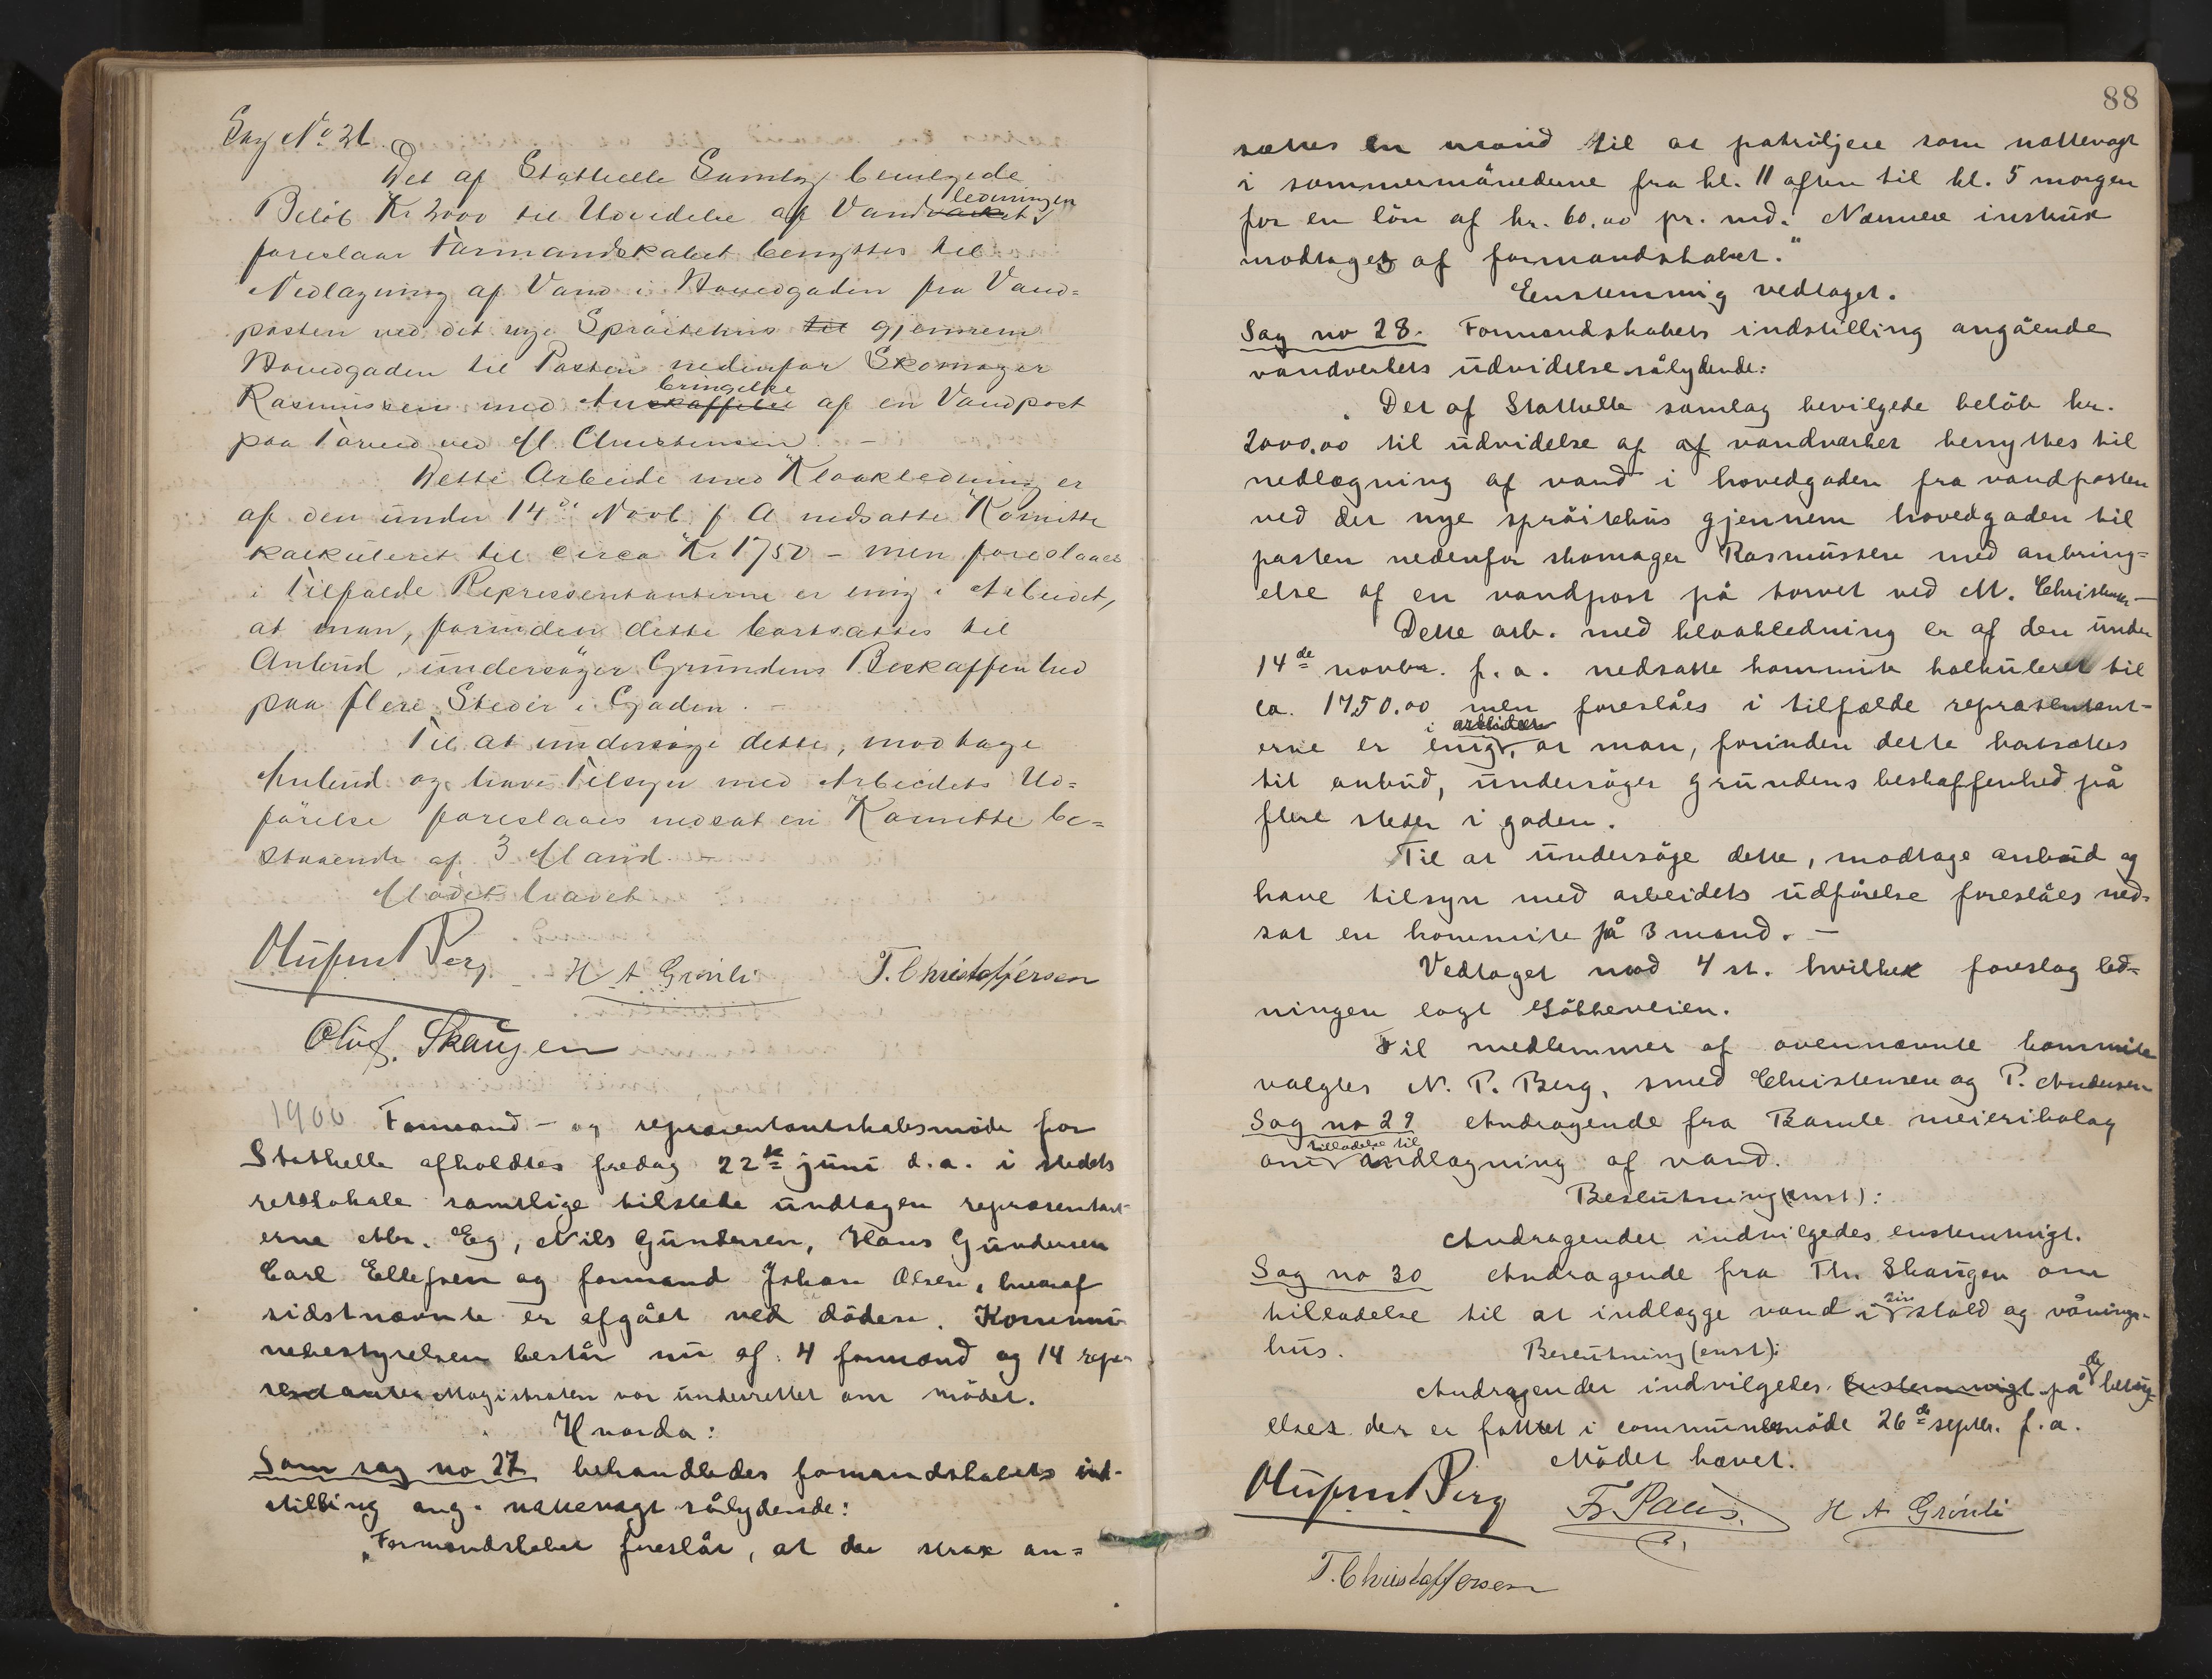 Sag No. 21.
Det af Stathelle Samlag bevilgede
ledningen
Beløb Kr 2000 til Udvidelse af Vandværket
foreslaar Formandskabet benyttes til
Nedlægning af Vand i Hovedgaden fra Vand=
posten ved det nye Sprøitehus til gjennem
Hovedgaden til Posten nedenfor Skomager
bringelse
Rasmussen med Anskaffelse af en Vandpost
paa Torved ved M. Christensen. –
Dette Arbeide med Kloakledning er
af den under 14de Novb f A nedsatte Komitte
kalkuleret til circa Kr 1750 – men foreslaaes
i Tilfælde Repræsentanterne er enig i Arbeidet,
at man, forinden dette bortsættes til
Anbud, undersøger Grundens Beskaffenhed
paa flere Steder i Gaden. –
Til at undersøge dette, modtage
Anbud og have Tilsyn med Arbeidets Ud=
førelse foreslaaes nedsat en Komitte be=
staaende af 3 Mand. –
Mødet hævet
Olufsen Berg H A Grønli T. Christoffersen
Oluf. Skaugen
1900 Formand – og repræsentantskabsmøde for
Stathelle afholdtes fredag 22de juni d.a. i stedets
retslokale samtlige tilstede undtagen repræsentant-
erne Abr. Eg, Nils Gundersen, Hans Gundersen
Carl Ellefsen og formand Johan Olsen, hvoraf
sidstnævnte er afgået ved døden. Kommu-
nebestyrelsen består nu af 4 formænd og 14 repr-
sentanter Magistraten var underrettet om mødet.
Hvorda:
Som sag no 27 behandledes formandskabets ind-
stilling ang. nattevagt sålydende:
„Formandskabet foreslår, at der strax an=
88
sættes en mand til at patruljere som nattevagt
i sommermånederne fra kl. 11 aften til kl. 5 morgen
for en løn af kr. 60.00 pr. md. Nærmere instrux
modtages af formandskabet."
Eenstemmig vedtaget.
Sag no 28. Formandskabets indstilling angående
vandverkets udvidelse sålydende:
„Det af Stathelle samlag bevilgede beløb kr.
2000,00 til udvidelse af af vandværket benyttes til
nedlægning af vand i hovedgaden fra vandposten
ved det nye sprøitehus gjennem hovedgaden til
posten nedenfor skomager Rasmussen med anbring=
else af en vandpost på torvet ved M. Christensen –
Dette arb. med kloakledning er af den under
14de novbr. f. a. nedsatte kommite kalkuleret til
ca. 1750.00 men foreslåes i tilfælde repræsentant-
i arbeidet
erne er enig, at man, forinden dette bortsættes
til anbud, undersøger grundens beskaffenhed på
flere steder i gaden.
Til at undersøge dette, modtage anbud og
have tilsyn med arbeidets udførelse foreslåes ned-
sat en kommite på 3 mand. –
Vedtaget mod 4 st. hvilket foreslog led-
ningen lagt Løkkeveien.
Til medlemmer af ovennævnte kommite
valgtes N. P. Berg, smed Christensen og P. Andersen
Sag no 29 Andragende fra Bamle meieribolag
tilladelse til
om indlægning af vand.
Beslutning (enst):
Andragendet indvilgedes enstemmigt.
Sag no 30 Andragende fra Th. Skaugen om
sin
tilladelse til at indlægge vand i stald og vånings-
hus. Beslutning (enst):
de
Andragendet indvilgedes enstemmigt på beting-
elser der er fattet i communemøde 26de septb. f. a.
Mødet hævet.
Olufsen Berg Fr. Paus. H A Grønli
T. Christoffersen